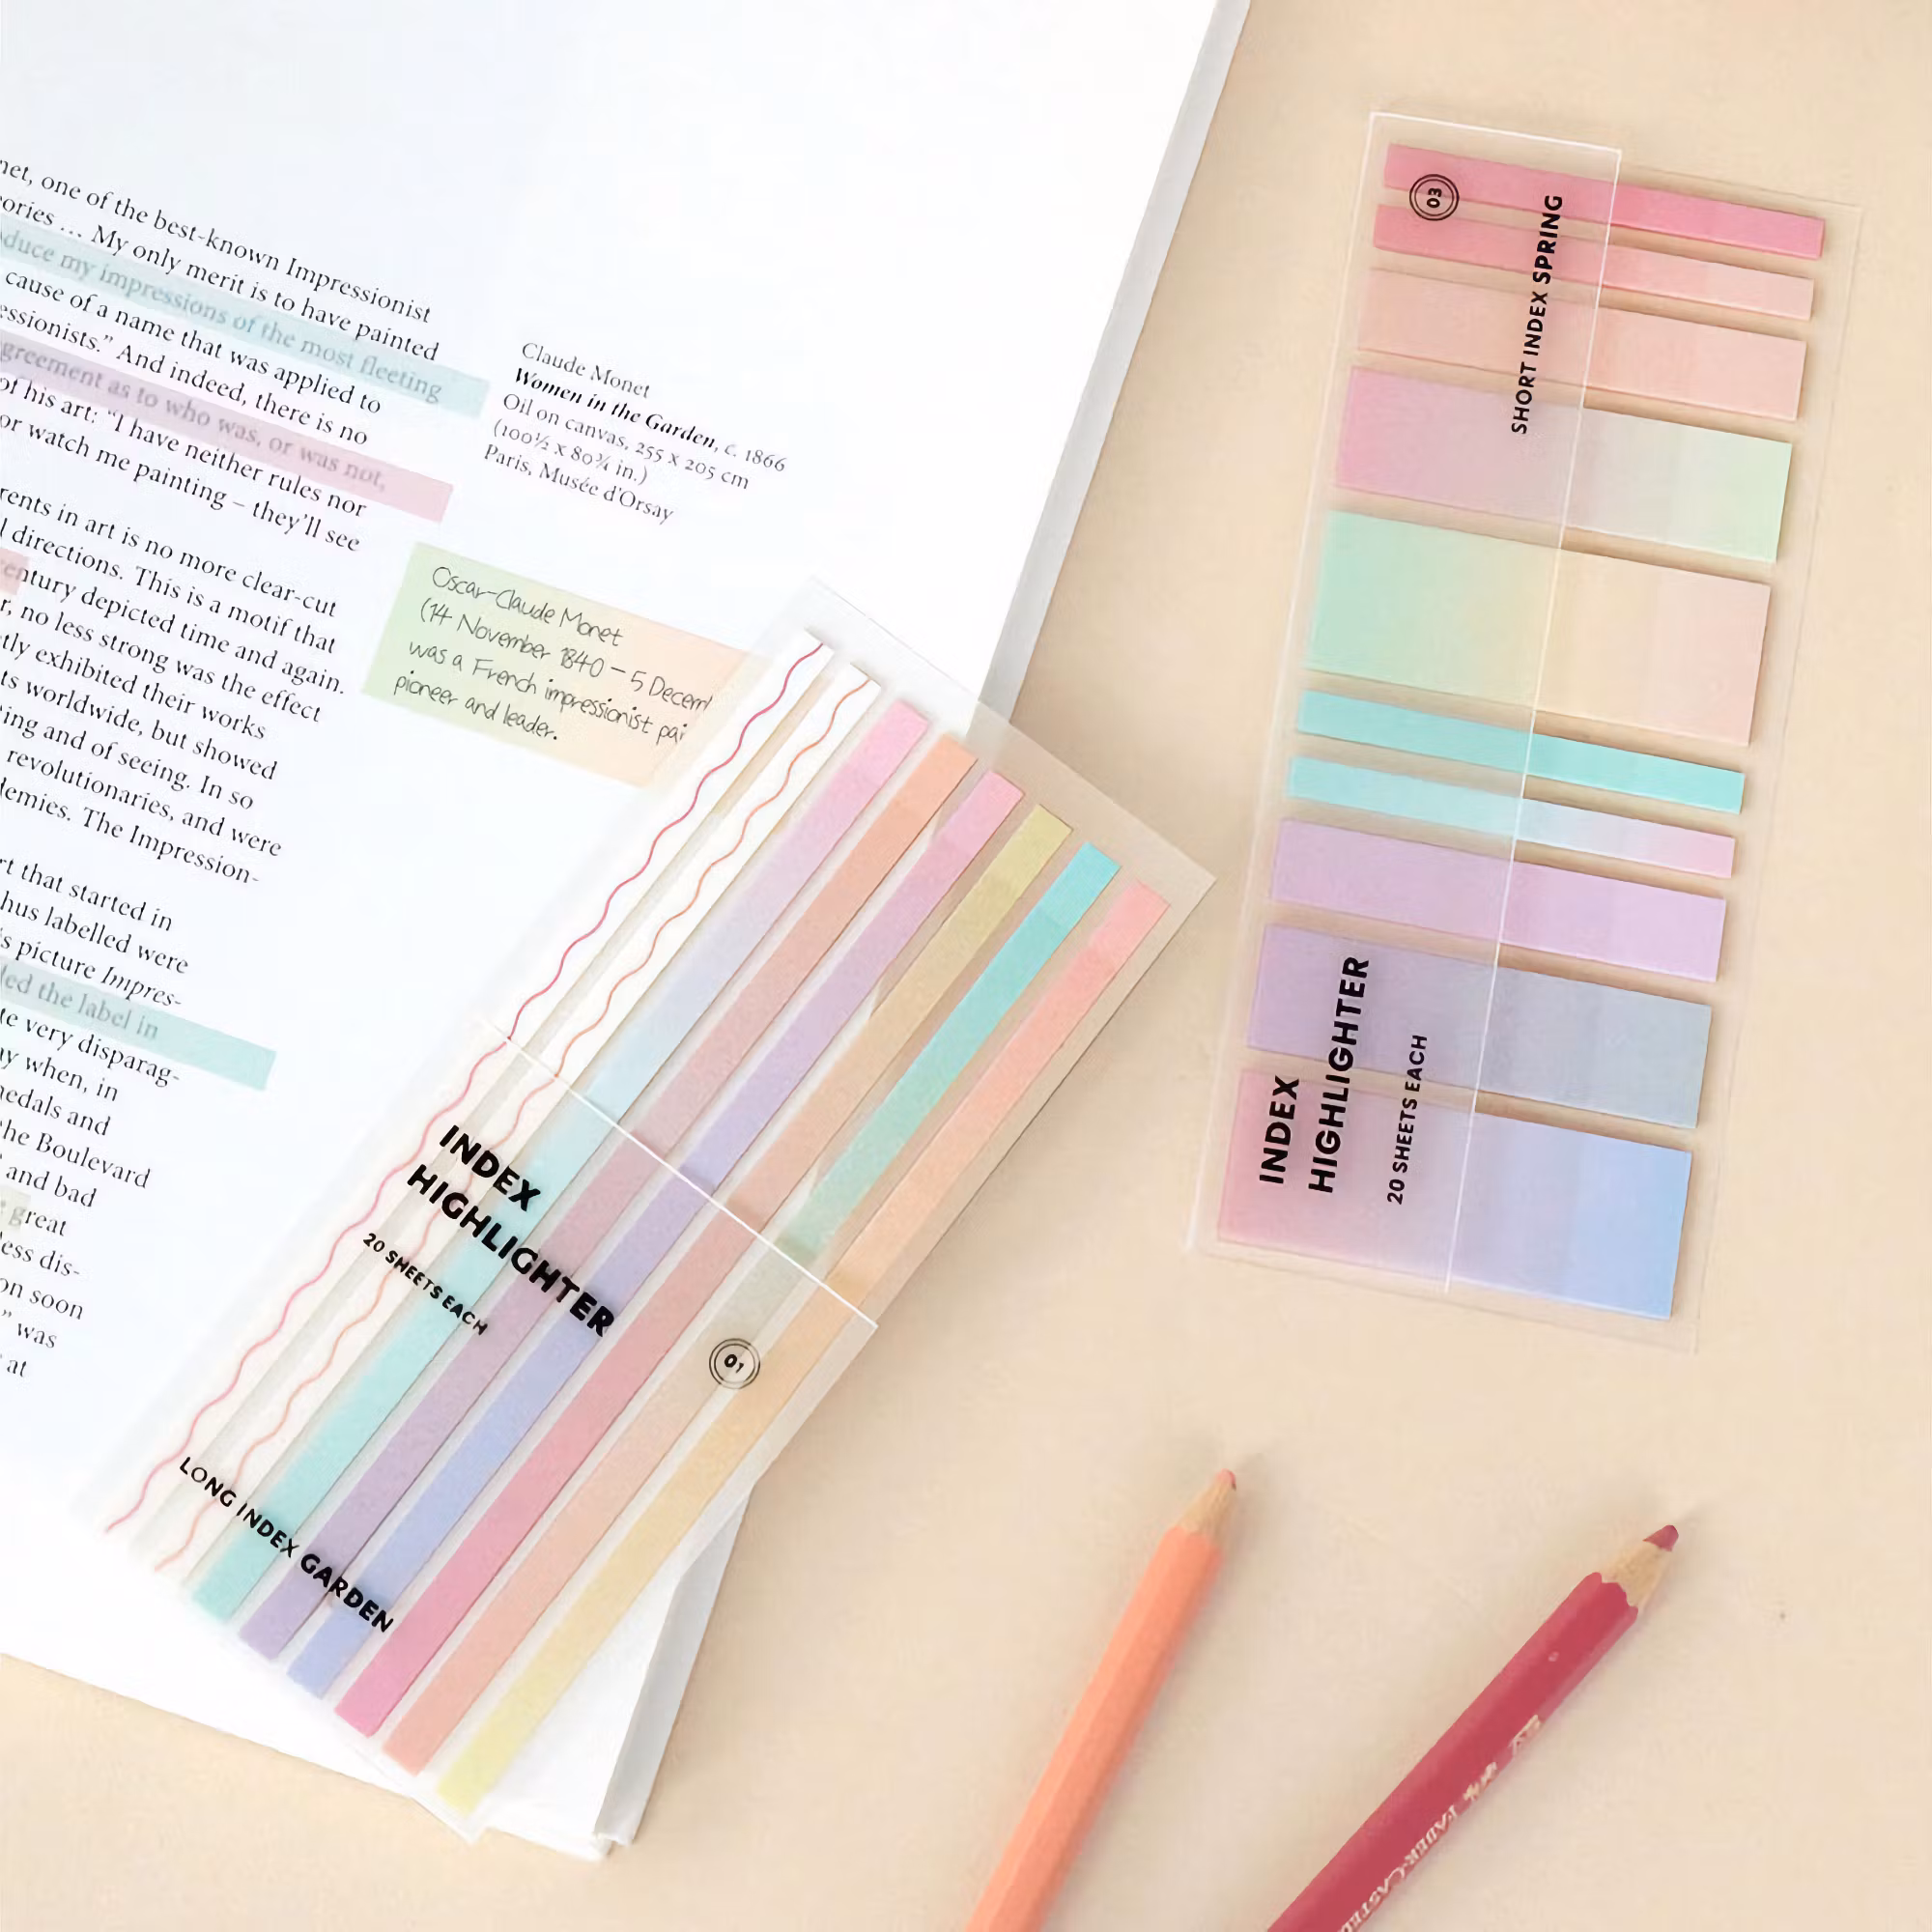 net, one of the best-known Impressionist
ories ... My only merit is to have painted
duce my impressions of the most fleeting
cause of a name that was applied to
essionists.” And indeed, there is no
greement as to who was, or was not,
of his art: “I have neither rules nor
or watch me painting – they’ll see
rents in art is no more clear-cut
l directions. This is a motif that
entury depicted time and again.
r, no less strong was the effect
tly exhibited their works
ts worldwide, but showed
ing and of seeing. In so
revolutionaries, and were
lemies. The Impression-
rt that started in
hus labelled were
’s picture Impres-
led the label in
te very disparag-
ay when, in
nedals and
he Boulevard
and bad
great
less dis-
on soon
” was
at
Claude Monet
Women in the Garden, c. 1866
Oil on canvas, 255 x 205 cm
(100½ x 80¾ in.)
Paris, Musée d’Orsay
Oscar-Claude Monet
(14 November 1840 – 5 Decem
was a French impressionist pai
pioneer and leader.
INDEX
HIGHLIGHTER
20 SHEETS EACH
01
LONG INDEX GARDEN
03
SHORT INDEX SPRING
INDEX
HIGHLIGHTER
20 SHEETS EACH
FABER-CASTE